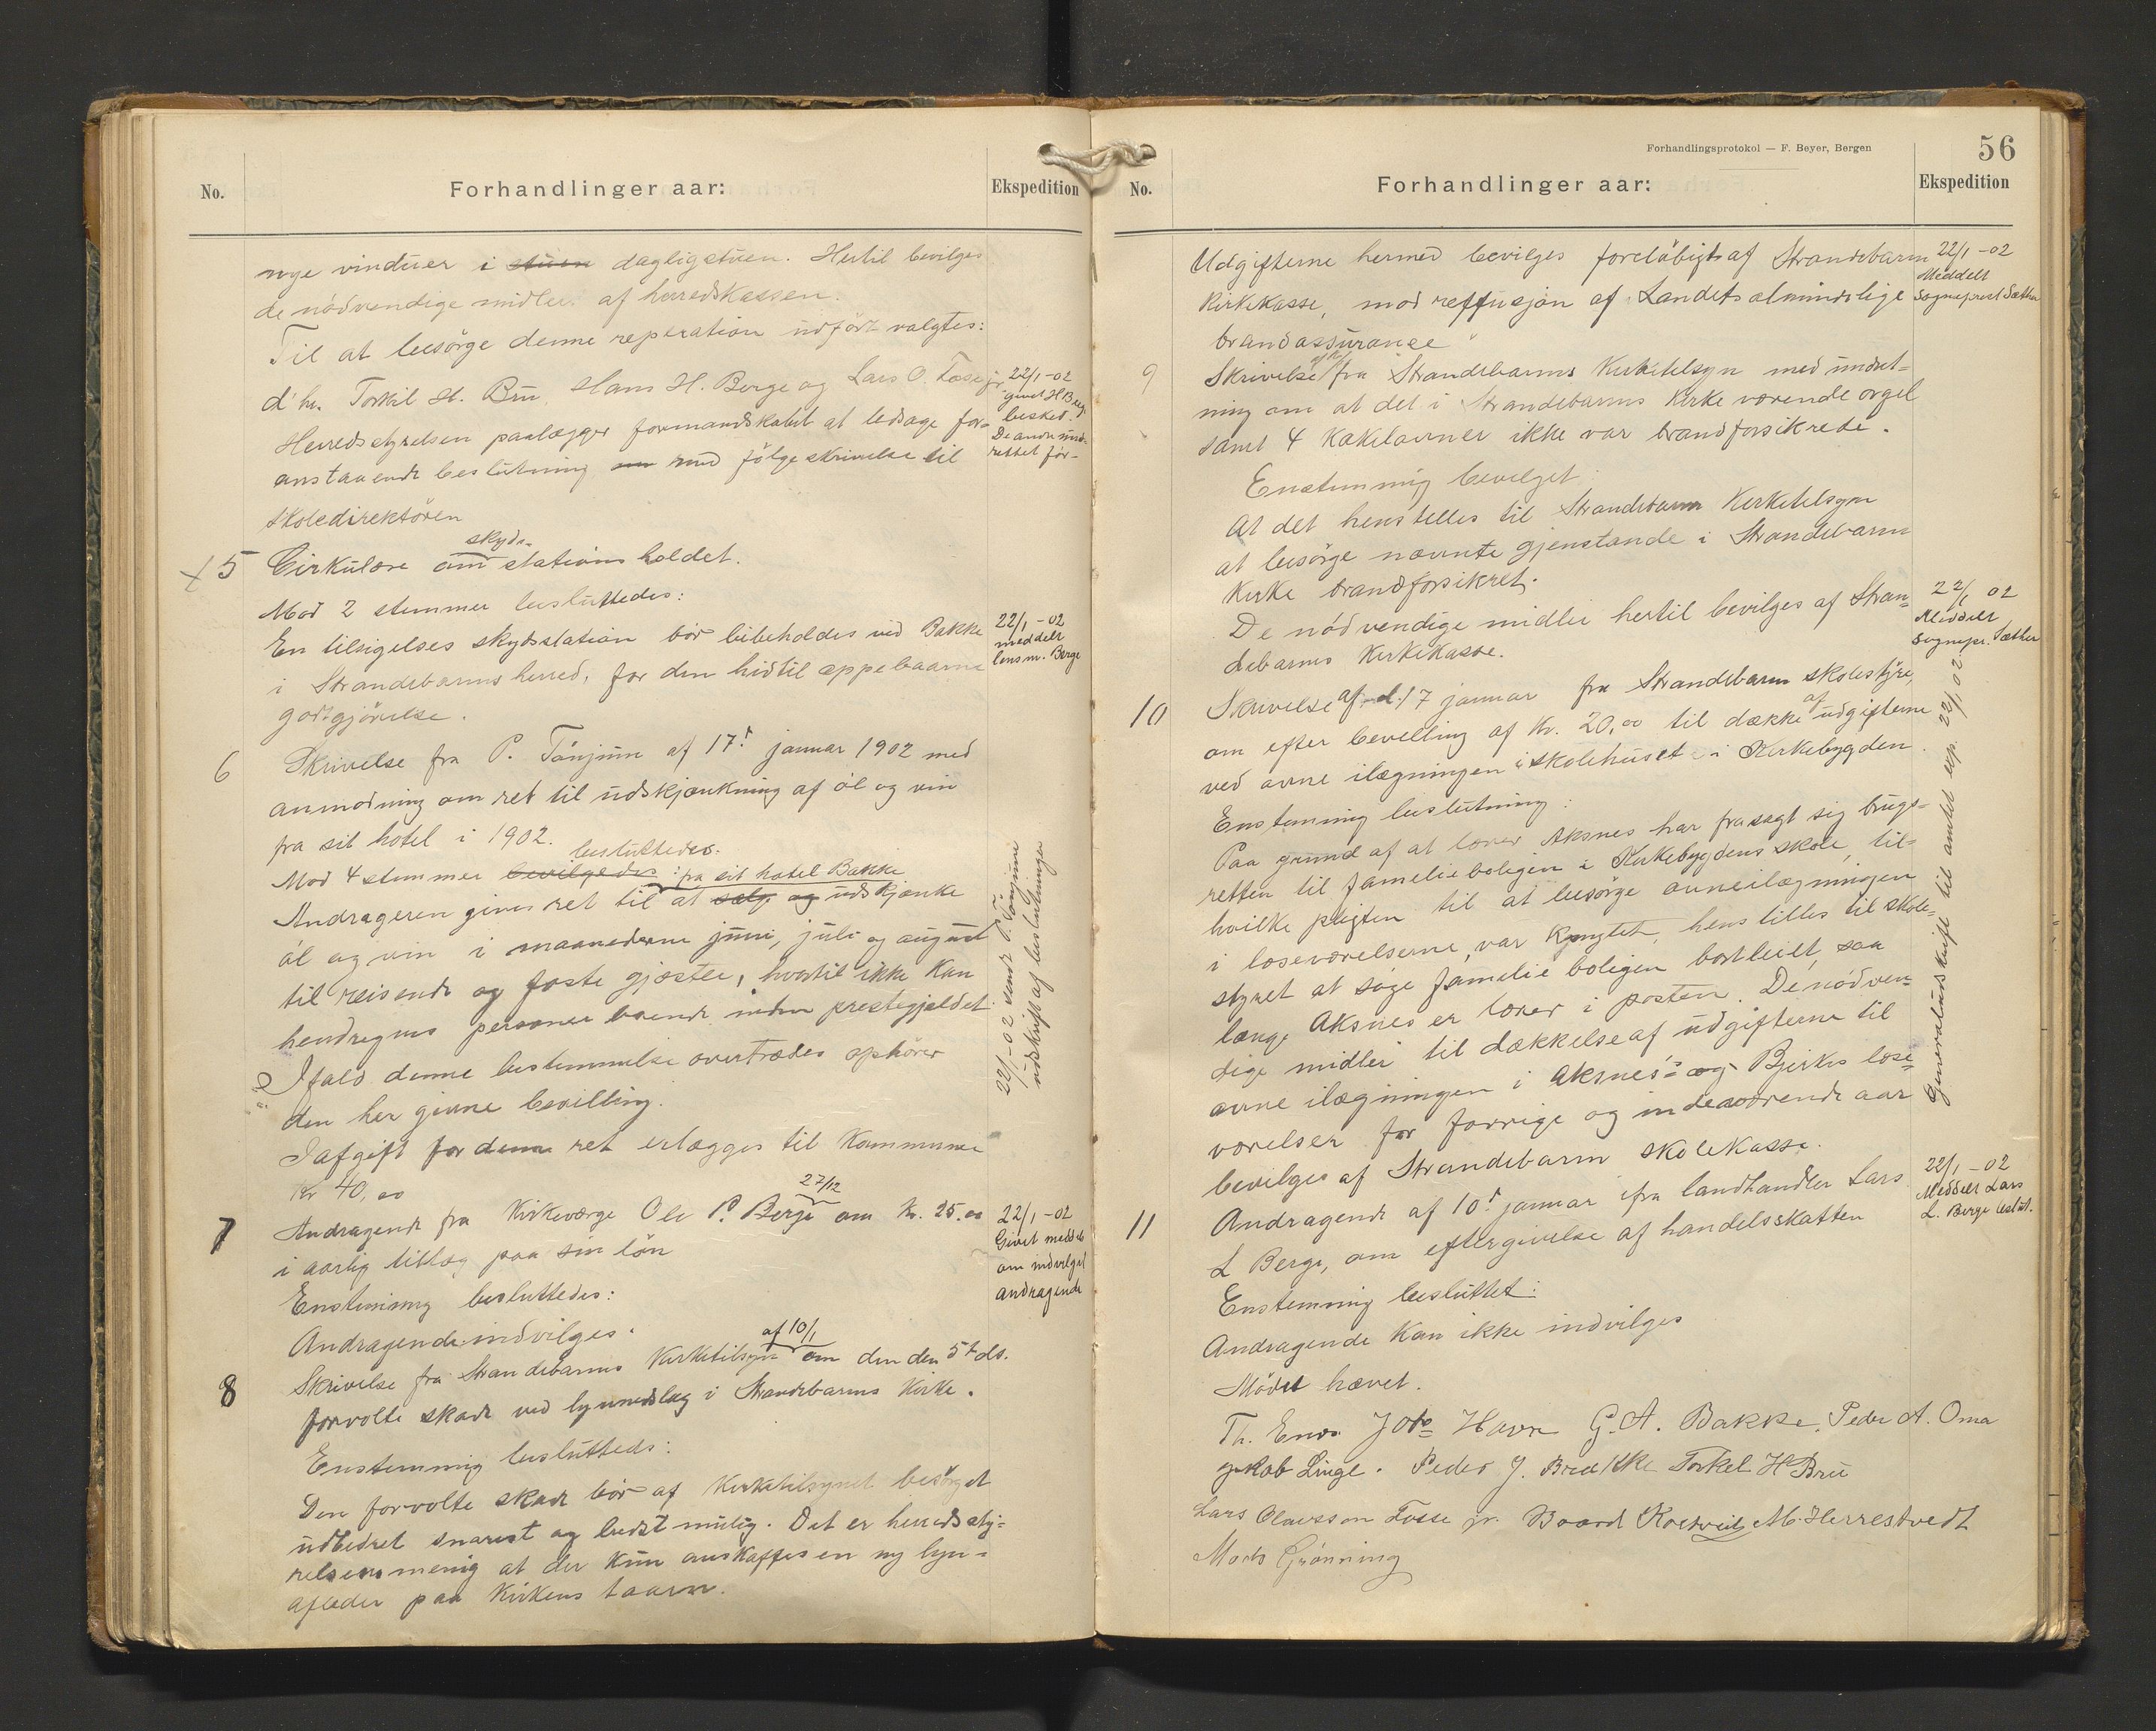 No.
Forhandlinger aar:
Ekspedition
nye vinduer i stuen dagligstuen. Hertil bevilges
de nödvendige midler af herredskassen.
Til at besörge denne reperation udfört valgtes:
d'hr. Torkil H. Bru, Hans H. Berge og Lars O. Tosse jr.
22/1-02
givet H Berge
besked.
De andre und-
rettet för-
Herredsstyrelsen paalægger formandskabet at ledsage for-
anstaaende beslutning med fölgeskrivelse til
skoledirektören
5 Cirkulære om skyds-stationsholdet.
Mod 2 stemmer besluttedes:
En tilsigelses skydsstation bör bibeholdes ved Bakke
i Strandebarms herred, for den hidtil oppebaarne
godtgjörelse.
22/1-02
meddelt
lensm. Berge
6 Skrivelse fra P. Tönjum af 17' januar 1902 med
anmodning om ret til udskjænkning af öl og vin
fra sit hotel i 1902.
besluttedes.
Mod 4 stemmer bevilgedes: fra sit hotel Bakke
Andrageren gives ret til at salg og udskjænke
öl og vin i maanederne juni, juli og august
til reisende og faste gjæster, hvortil ikke kan
hendregnes personer boende inden prestegjældet.
Ifald denne bestemmelse overtrædes ophörer
den her givne bevilling.
I afgift for denne ret erlægges til Kommunen
Kr 40,00
22/1-02 sendt P. Tönjum
udskrift af beslutninger
7 Andragende fra Kirkeværge Ole P. Berge 27/12 om kr. 25.00
i aarlig tillæg paa sin lön
Enstemmig besluttedes:
Andragende indvilges.
22/1-02
Givet meddel
om indvilget
andragende
8 Skrivelse fra Strandebarms Kirketilsyn af 10/1 om den den 5t ds.
forvolte skade ved lynnedslag i Strandebarms Kirke.
Enstemmig besluttedes:
Den forvolte skade bör af Kirketilsynet besörget
udbedret snarest og bedst mulig. Det er herredssty-
relsens menig at der kun anskaffes en ny lyn-
afleder paa Kirkens taarn.
Forhandlingsprotokol — F. Beyer, Bergen
56
No.
Forhandlinger aar:
Ekspedition
Udgifterne hermed bevilges forelöbigt af Strandebarm
Kirkekasse, mod reffusjon af "Landets almindelige
brandassurance"
22/1-02
Meddelt
Sogneprest Sæther
9 Skrivelse fra Strandebarms Kirketilsyn med undret-
ning om at det i Strandebarms Kirke værende orgel
samt 4 Kakelovner ikke var brandforsikrede.
Enstemmig bevilget:
At det henstilles til Strandebarm Kirketilsyn
at besörge nævnte gjenstande i Strandebarm
Kirke brandforsikret.
De nödvendige midler hertil bevilges af Stran-
debarms Kirkekasse.
22/1 02
Meddelt
Sognepr. Sæther
10 Skrivelse af d. 17 januar fra Strandebarm skolestyre,
om efter bevelling af Kr. 20,00 til dække af udgifterne
ved ovne ilægningen i skolehuset i Kirkebygden.
Enstemmig beslutning:
Paa grund af at lærer Aksnes har frasagt sig brugs-
retten til familieboligen i Kirkebygdens skole, til-
hvilke pligten til at besörge ovneilægningen
i læseværelserne, var knyttet, henstilles til skole-
styret at söge familieboligen bortleiet, saa
længe Aksnes er lærer i posten. De nödven-
dige midler til dækkelse af udgifterne til
ovne ilægningen i Aksnes's og Bjerkes læse-
værelser for forrige og indeværende aar
bevilges af Strandebarm skolekasse.
Generaludskrift til amtet exp. 22/1 02
11 Andragende af 10' januar fra landhandler Lars
L Berge, om eftergivelse af handelsskatten
Enstemmig besluttet:
Andragende kan ikke indvilges
Mödet hævet.
22/1-02
Meddelt Lars
L. Berge beslut.
Th. Enes Havn G. A. Bakke, Peder A. Oma
Jakob Linge. Peder J. Bredkke Torkel H Bru
Lars Olavsson Tosse jr. Baard M. Herrestvedt
Mads Grönning